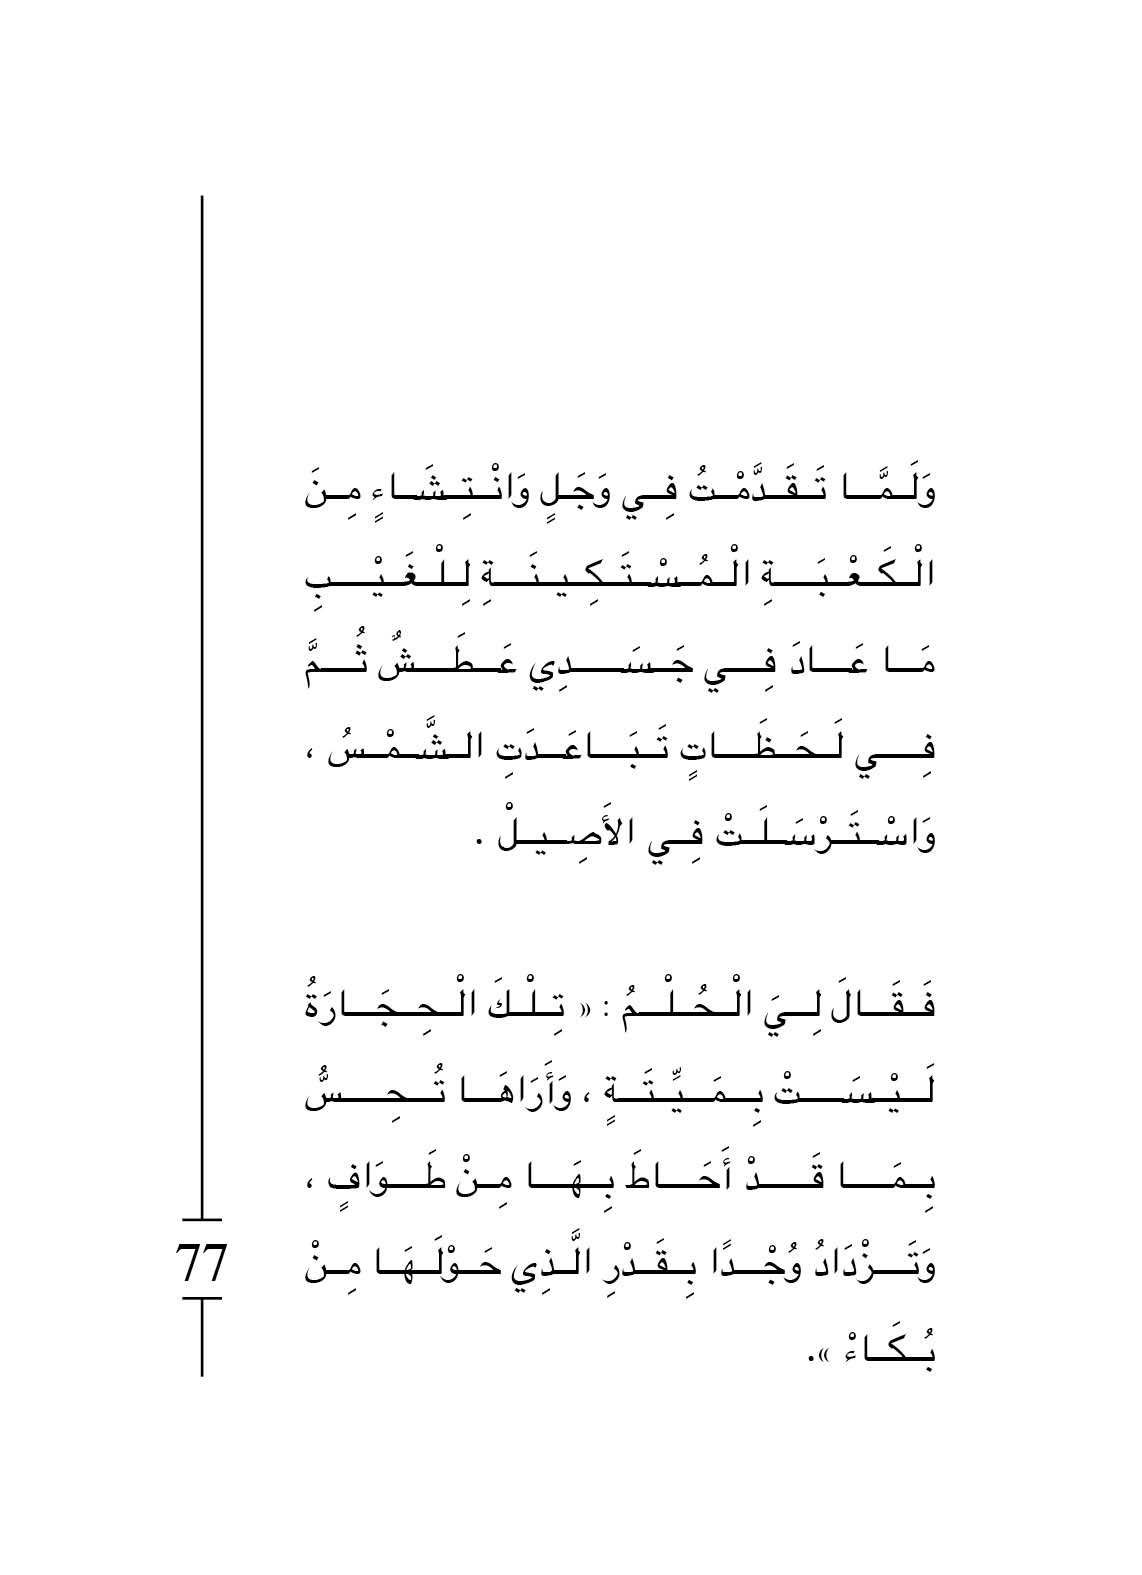 وَلَمَّا تَقَدَّمْتُ فِي وَجَلٍ وَانْتِشَاءٍ مِنَ
الْكَعْبَةِ الْمُسْتَكِينَةِ لِلْغَيْبِ
مَا عَادَ فِي جَسَدِي عَطَشٌ ثُمَّ
فِي لَحَظَاتٍ تَبَاعَدَتِ الشَّمْسُ ،
وَاسْتَرْسَلَتْ فِي الأَصِيلْ .
فَقَالَ لِيَ الْحُلْمُ : « تِلْكَ الْحِجَارَةُ
لَيْسَتْ بِمَيِّتَةٍ ، وَأَرَاهَا تُحِسُّ
بِمَا قَدْ أَحَاطَ بِهَا مِنْ طَوَافٍ ،
وَتَزْدَادُ وُجْدًا بِقَدْرِ الَّذِي حَوْلَهَا مِنْ
بُكَاءْ ».
77